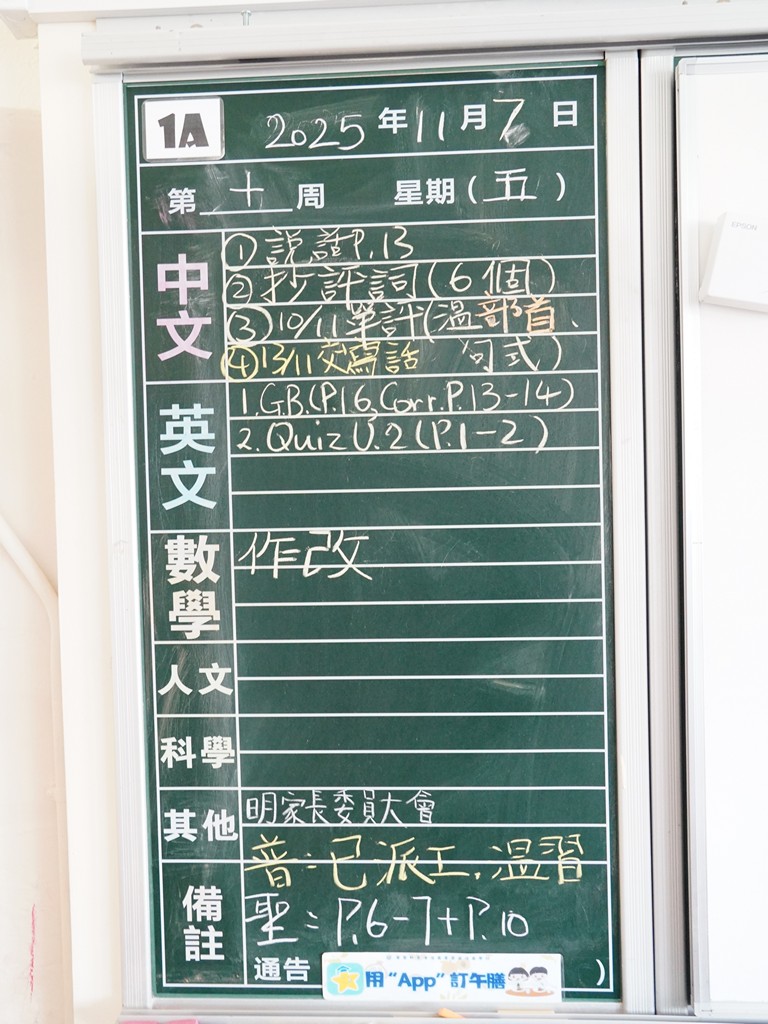 1A 2025年11月7日
第十周 星期(五)
中文
①說話P.13
②抄評詞(6個)
③10/11單評(溫部首、
④13/11交寫話 句式)
英文
1.G.B.(P.16,Corr.P.13-14)
2.Quiz U.2(P.1-2)
數學
作改
人文
科學
其他
明家長委員大會
普:已派工,溫習
備註
聖:P.6-7+P.10
通告 )
用“App”訂午膳
EPSON